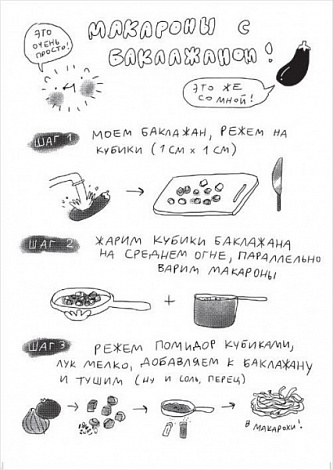 ЭТО
ОЧЕНЬ
ПРОСТО!
МАКАРОНЫ С
БАКЛАЖАНОМ!
ЭТО ЖЕ
СО МНОЙ!
ШАГ 1
МОЕМ БАКЛАЖАН, РЕЖЕМ НА
КУБИКИ (1 СМ × 1 СМ)
ШАГ 2
ЖАРИМ КУБИКИ БАКЛАЖАНА
НА СРЕДНЕМ ОГНЕ, ПАРАЛЛЕЛЬНО
ВАРИМ МАКАРОНЫ
+
ШАГ 3
РЕЖЕМ ПОМИДОР КУБИКАМИ,
ЛУК МЕЛКО, ДОБАВЛЯЕМ К БАКЛАЖАНУ
И ТУШИМ (НУ И СОЛЬ, ПЕРЕЦ)
В МАКАРОХИ!